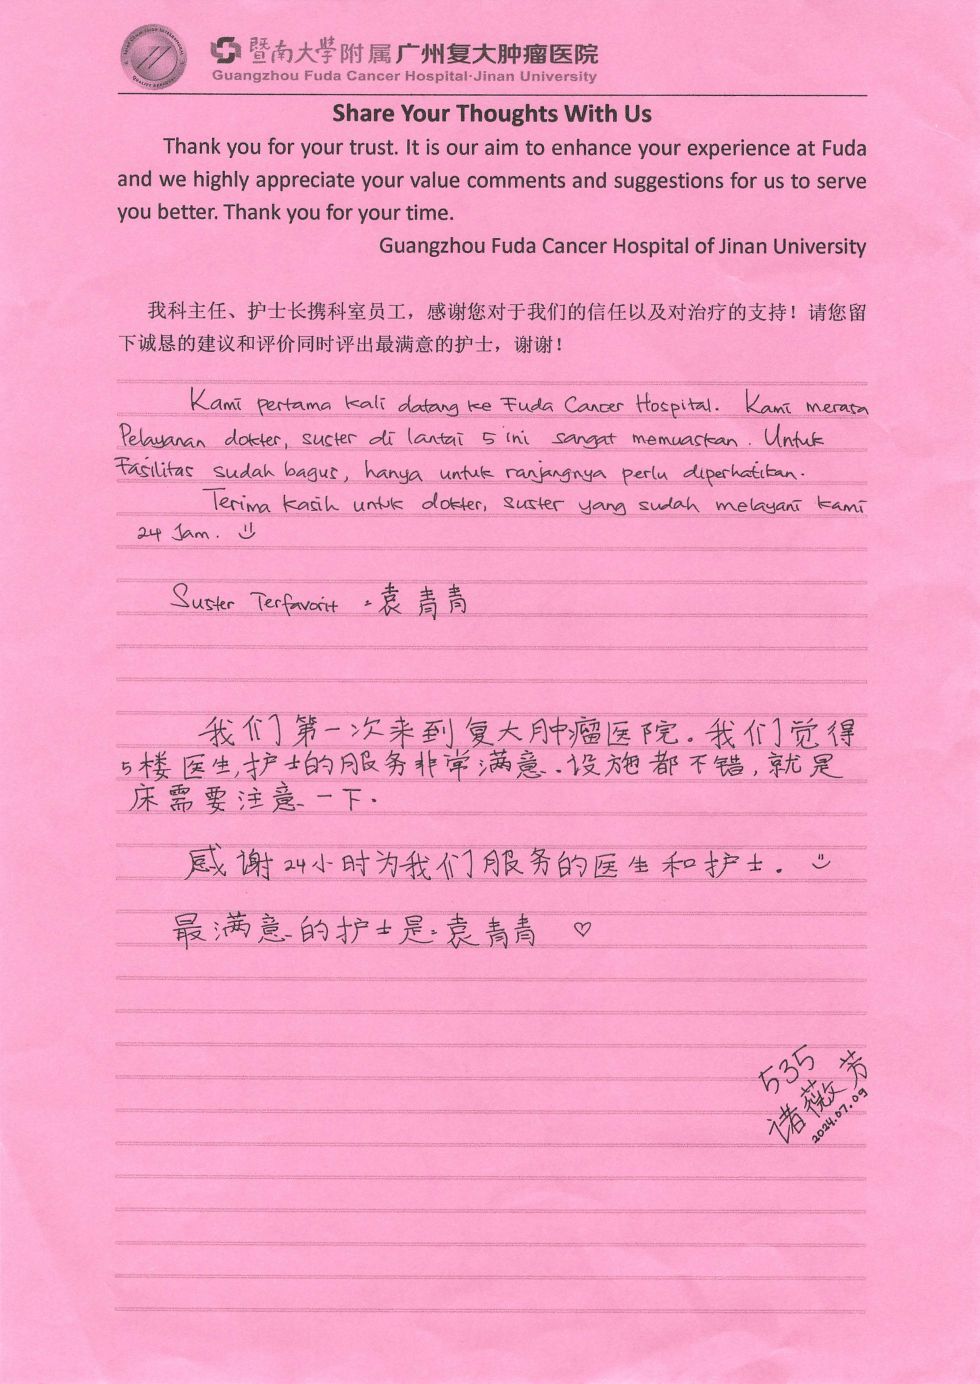 暨南大学附属广州复大肿瘤医院
Guangzhou Fuda Cancer Hospital·Jinan University
Share Your Thoughts With Us
Thank you for your trust. It is our aim to enhance your experience at Fuda
and we highly appreciate your value comments and suggestions for us to serve
you better. Thank you for your time.
Guangzhou Fuda Cancer Hospital of Jinan University
我科主任、护士长携科室员工，感谢您对于我们的信任以及对治疗的支持！请您留
下诚恳的建议和评价同时评出最满意的护士，谢谢！
Kami pertama kali datang ke Fuda Cancer Hospital. Kami merasa
Pelayanan dokter, suster di lantai 5 ini sangat memuaskan. Untuk
Fasilitas sudah bagus, hanya untuk ranjangnya perlu diperhatikan.
Terima kasih untuk dokter, suster yang sudah melayani kami
24 Jam. :)
Suster Terfavorit = 袁青青
我们第一次来到复大肿瘤医院。我们觉得
5楼医生,护士的服务非常满意。设施都不错,就是
床需要注意一下.
感谢24小时为我们服务的医生和护士. :)
最满意的护士是:袁青青 ♡
535
诸薇芳
2024.07.09